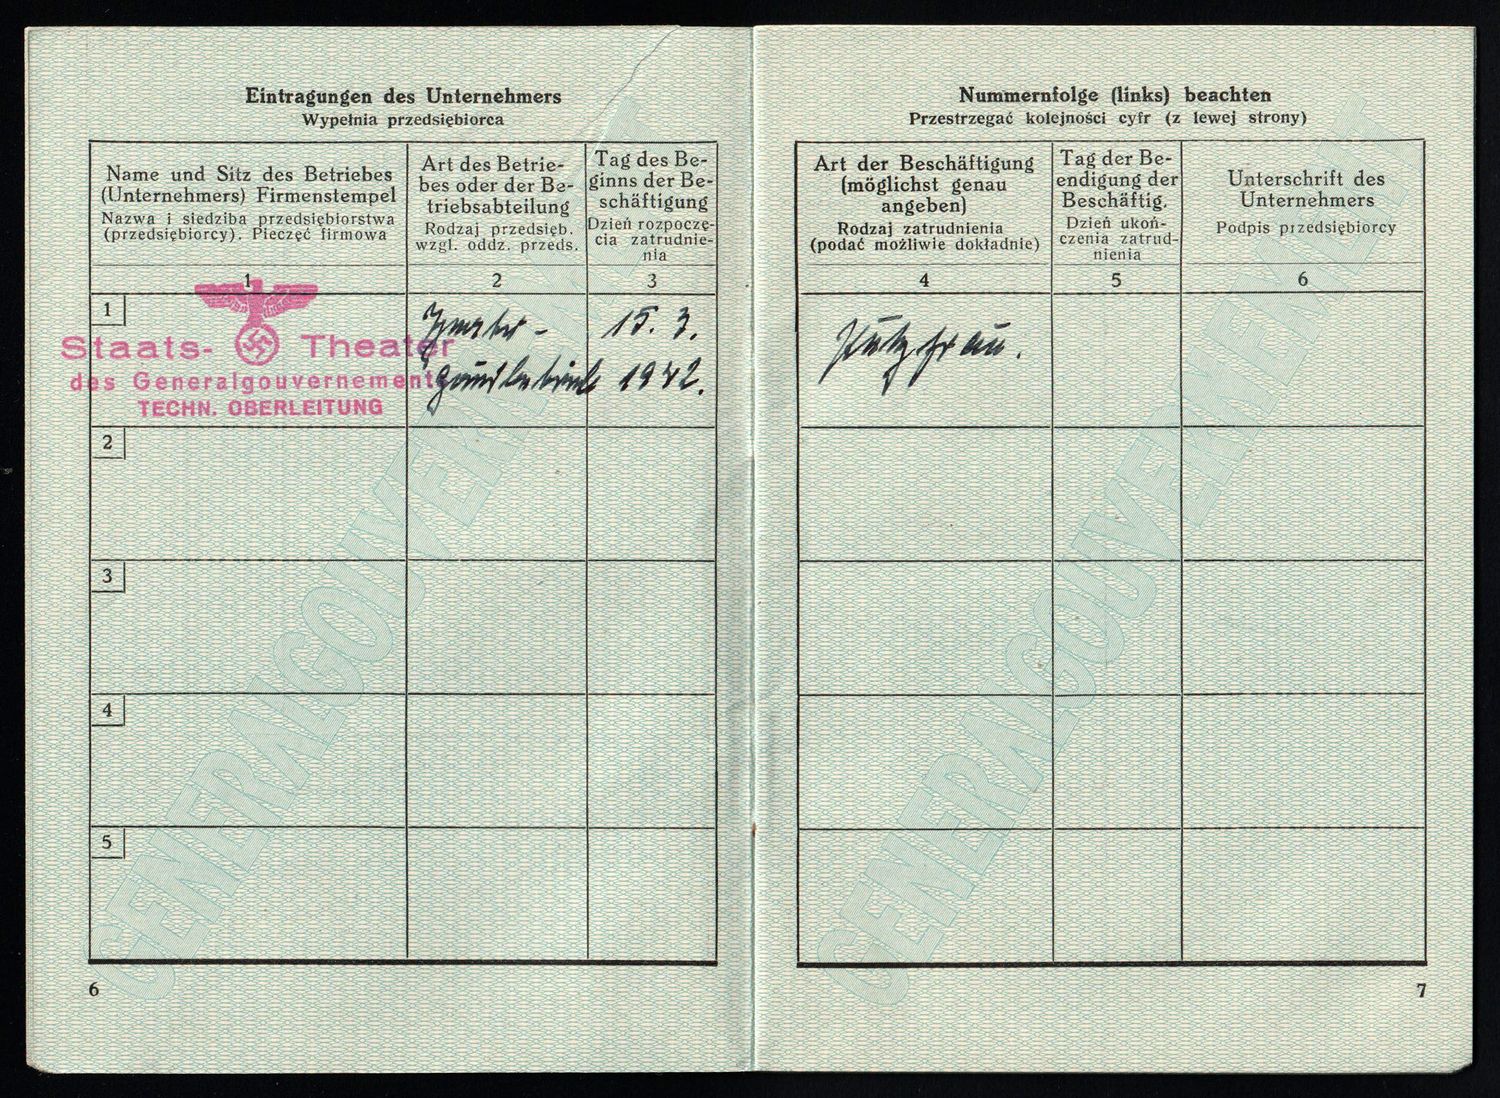 Eintragungen des Unternehmers
Wypełnia przedsiębiorca
Name und Sitz des Betriebes
(Unternehmers) Firmenstempel
Nazwa i siedziba przedsiębiorstwa
(przedsiębiorcy). Pieczęć firmowa
Art des Betrie-
bes oder der Be-
triebsabteilung
Rodzaj przedsięb.
wzgl. oddz. przeds.
Tag des Be-
ginns der Be-
schäftigung
Dzień rozpoczę-
cia zatrudnie-
nia
1
2
3
1
Staats- Theater
des Generalgouvernements
TECHN. OBERLEITUNG
15. 3.
1942.
2
3
4
5
6
GENERALGOUVERNEMENT
Nummernfolge (links) beachten
Przestrzegać kolejności cyfr (z lewej strony)
Art der Beschäftigung
(möglichst genau
angeben)
Rodzaj zatrudnienia
(podać możliwie dokładnie)
Tag der Be-
endigung der
Beschäftig.
Dzień ukoń-
czenia zatrud-
nienia
Unterschrift des
Unternehmers
Podpis przedsiębiorcy
4
5
6
Putzfrau.
7
GENERALGOUVERNEMENT